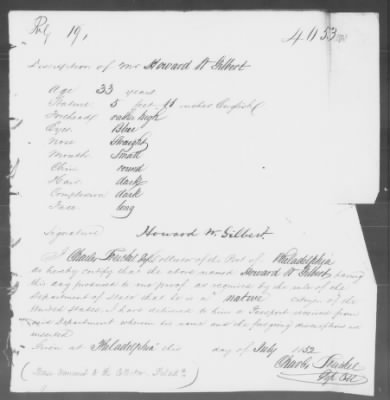 July 19,
Description of Mr Howard W Gilbert
Age 33 years
Stature 5 feet inches English
Forehead rather high
Eyes Blue
Nose Straight
Mouth Small
Chin round
Hair dark
Complexion dark
Face long
Signature Howard W. Gilbert.
I Charles Collector of the Port of Philadelphia
do hereby certify that the above named Howard W Gilbert having
this day produced to me proof as required by the rules of the
Department of State that he is a native citizen of the
United States, I have delivered to him a Passport received from
said Department wherein his name and the foregoing description are
inserted
Given at Philadelphia this day of July 1852
Charles
Coll